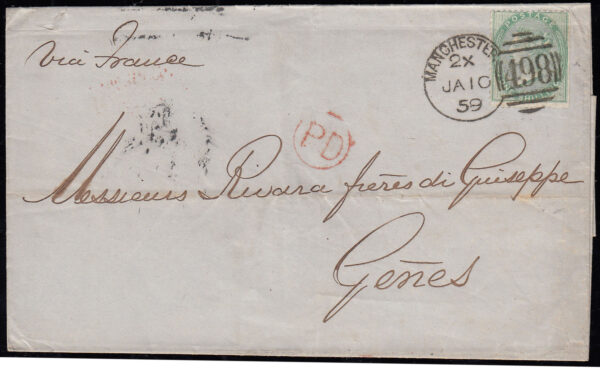 via France
POSTAGE
MANCHESTER
2X
JA 10
59
498
PD
Messieurs Rivara frères di Giuseppe
Gênes